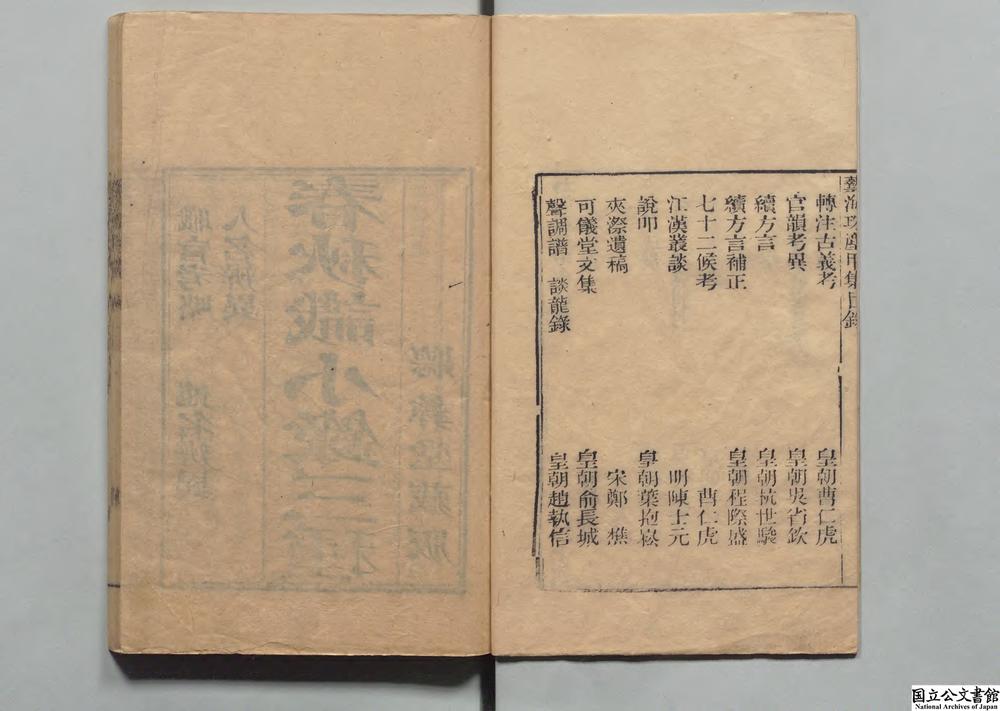 藝海珠塵甲集目錄
轉注古義考 皇朝曹仁虎
官韻考異 皇朝吳省欽
續方言 皇朝杭世駿
續方言補正 皇朝程際盛
七十二候考 曹仁虎
江漢叢談 明陳士元
說叩 皇朝葉抱崧
夾漈遺稿 宋鄭樵
可儀堂文集 皇朝俞長城
聲調譜 談龍錄 皇朝趙執信
春秋識小錄三種
職官考略
人名辨異
聽彝堂藏版
国立公文書館
National Archives of Japan